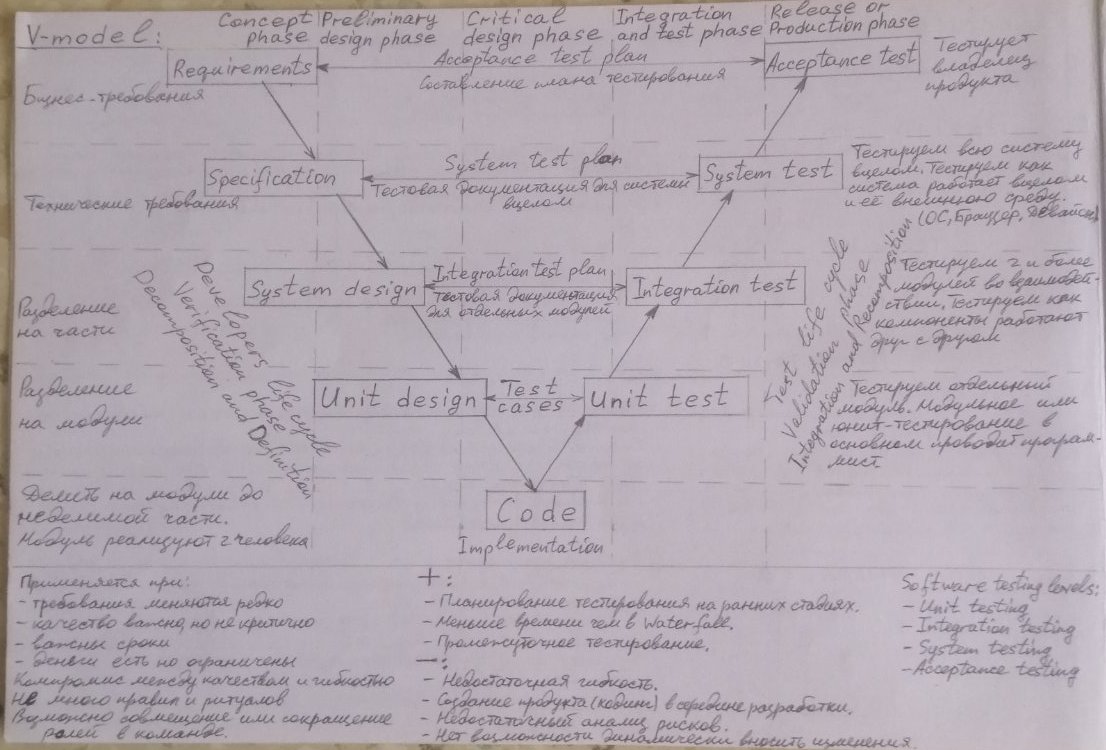 V-model:
Concept phase
Preliminary design phase
Critical design phase
Integration and test phase
Release or Production phase
Requirements
Acceptance test plan
Составление плана тестирования
Acceptance test
Тестирует
владелец
продукта
Бизнес-требования
Specification
System test plan
Тестовая документация для системы
вцелом
System test
Тестируем всю систему
вцелом. Тестируем как
система работает вцелом
и её внешнюю среду.
(ОС, Браузер, Девайсы)
Технические требования
System design
Integration test plan
Тестовая документация
для отдельных модулей
Integration test
Тестируем 2 и более
модулей во взаимодей-
ствии. Тестируем как
компоненты работают
друг с другом
Разделение
на части
Developers life cycle
Verification phase
Decomposition and Definition
Test life cycle
Validation phase
Integration and Recomposition
Разделение
на модули
Unit design
Test
cases
Unit test
Тестируем отдельный
модуль. Модульное или
юнит-тестирование в
основном проводит програм-
мист
Делить на модули до
неделимой части.
Модуль реализуют 2 человека
Code
Implementation
Применяется при:
- требования меняются редко
- качество важно, но не критично
- важны сроки
- деньги есть но ограничены
Компромис между качеством и гибкостью
Не много правил и ритуалов
Возможно совмещение или сокращение
ролей в команде.
+:
- Планирование тестирования на ранних стадиях.
- Меньше времени чем в Waterfall.
- Промежуточное тестирование.
-:
- Недостаточная гибкость.
- Создание продукта (кодинг) в середине разработки.
- Недостаточный анализ рисков.
- Нет возможности динамически вносить изменения.
Software testing levels:
- Unit testing
- Integration testing
- System testing
- Acceptance testing